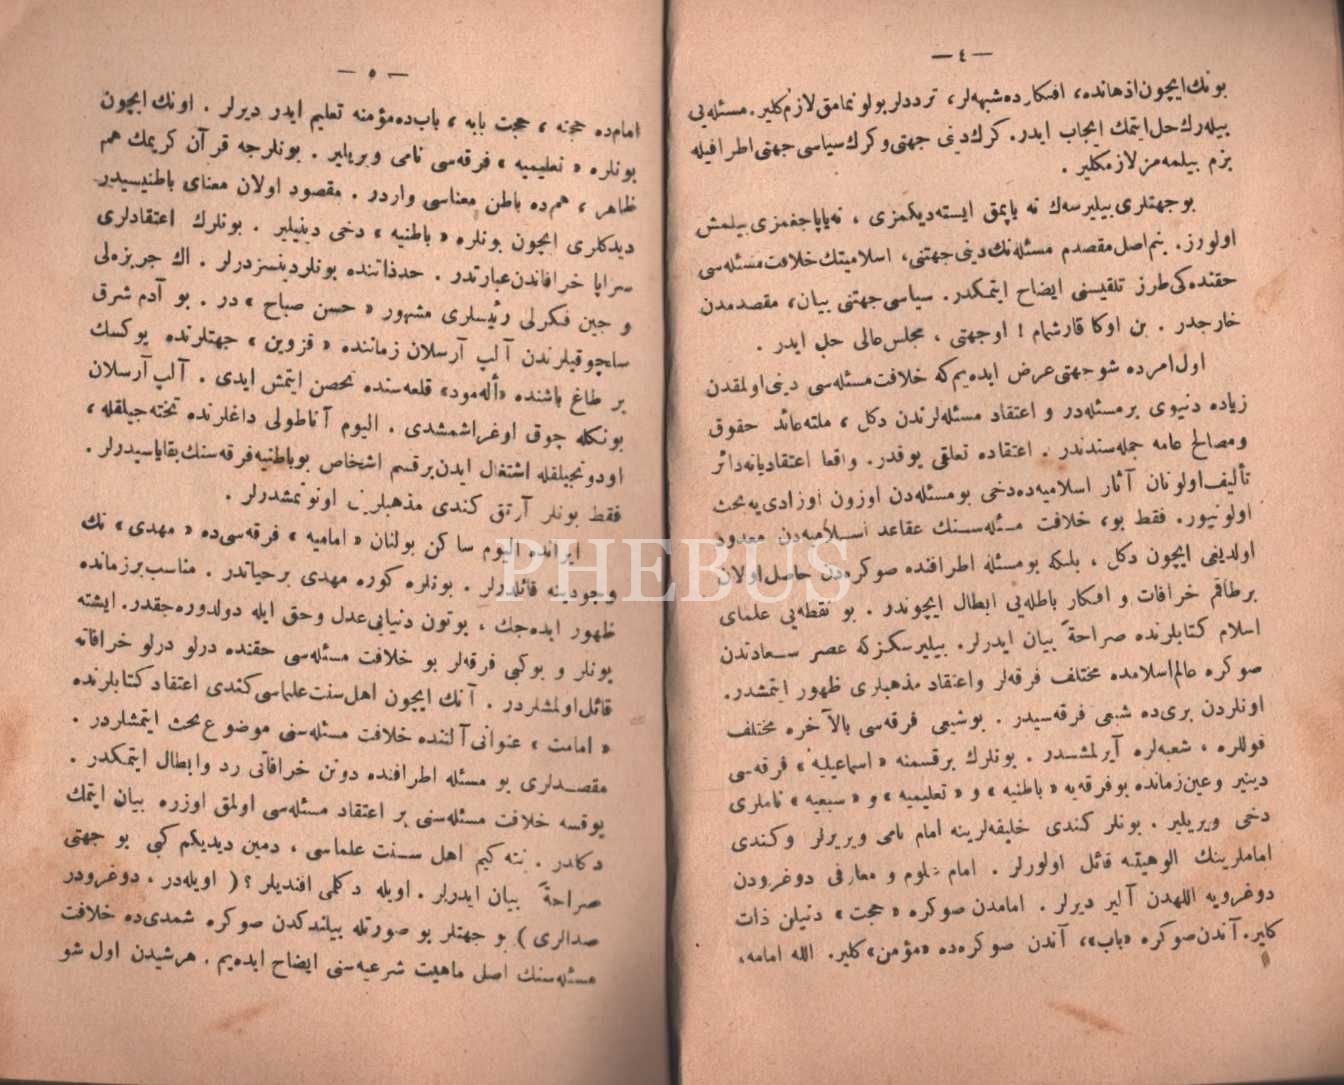 — ٤ —
بونك ایچون اذهانده، افكارده شبهه‌لر، ترددلر بولونمامق لازم كلیر. مسئله‌یی
بیله‌رك حل ایتمك ایجاب ایدر. كرك دینی جهتی و كرك سیاسی جهتی اطرافیله
بزم بیلمه‌مز لازمكلیر .
بو جهتلری بیلیرسه‌ك نه یاپمق ایسته‌دیكمزی ، نه‌یاپاجغمزی بیلمش
اولورز. بنم اصل مقصدم مسئله‌نك دینی جهتنی، اسلامیتك خلافت مسئله‌سی
حقنده‌كی طرز تلقیسنی ایضاح ایتمكدر. سیاسی جهتنی بیان، مقصدمدن
خارجدر . بن اوكا قارشمام ! او جهتی ، مجلس عالی حل ایدر .
اول امرده شو جهتی عرض ایده‌یم كه خلافت مسئله‌سی دینی اولمقدن
زیاده دنیوی بر مسئله‌در و اعتقاد مسئله‌لرندن دكل ، ملته عائد حقوق
ومصالح عامه جمله‌سندندر. اعتقاده تعلقی یوقدر. واقعا اعتقادیانه دائر
تألیف اولونان آثار اسلامیه‌ده دخی بو مسئله‌دن اوزون اوزادی‌یه بحث
اولونیور. فقط بو، خلافت مسئله‌سنك عقاعد اسلامیه‌دن معدود
اولدیغی ایچون دكل ، بلكه بو مسئله اطرافنده صوكره‌دن حاصل اولان
بر طاقم خرافات و افكار باطله‌یی ابطال ایچوندر . بو نقطه‌یی علمای
اسلام كتابلرنده صراحةً بیان ایدرلر. بیلیرسكز كه عصر سعادتدن
صوكره عالم اسلامده مختلف فرقه‌لر و اعتقاد مذهبلری ظهور ایتمشدر.
اونلردن بری‌ده شیعی فرقه‌سیدر . بو شیعی فرقه‌سی بالآخره مختلف
قوللره ، شعبه‌لره آیرلمشدر . بونلرك برقسمنه « اسماعیلیه » فرقه‌سی
دینیر و عین زمانده بو فرقه‌یه « باطنیه » و « تعلیمیه » و « سبعیه » ناملری
دخی ویریلیر . بونلر كندی خلیفه‌لرینه امام نامی ویریرلر و كندی
اماملرینك الوهیتنه قائل اولورلر . امام علوم و معارفی دوغرودن
دوغرویه اللهدن آلیر دیرلر . امامدن صوكره « حجت » دنیلن ذات
كلیر. آندن صوكره «باب»، آندن صوكره‌ده «مؤمن» كلیر. الله امامه،
— ٥ —
امام‌ده حجته ، حجت بابه ، باب‌ده مؤمنه تعلیم ایدر دیرلر . اونك ایچون
بونلره « تعلیمیه » فرقه‌سی نامی ویریلیر . بونلرجه قرآن كریمك هم
ظاهر ، هم‌ده باطن معناسی واردر . مقصود اولان معنای باطنیسیدر
دیدكلری ایچون بونلره « باطنیه » دخی دینیلیر . بونلرك اعتقادلری
سراپا خرافاتدن عبارتدر . حد ذاتنده بونلر دینسزدرلر . اك جربزه‌لی
و جین فكرلی رئیسلری مشهور « حسن صباح » در . بو آدم شرق
سلچوقیلرندن آلپ آرسلان زماننده « قزوین » جهتلرنده یوكسك
بر طاغ باشنده «أله‌مود» قلعه‌سنده تحصن ایتمش ایدی . آلپ آرسلان
بونكله چوق اوغراشمشدی . الیوم آناطولی داغلرنده تخته‌جیلقله ،
اودونجیلقله اشتغال ایدن برقسم اشخاص بو باطنیه فرقه‌سنك بقایاسیدرلر .
فقط بونلر آرتق كندی مذهبلرینی اونوتمشدرلر .
ایرانده الیوم ساكن بولنان « امامیه » فرقه‌سی‌ده « مهدی » نك
وجودینه قائلدرلر . بونلره كوره مهدی بر حیاتدر . مناسب بر زمانده
ظهور ایده‌جك ، بوتون دنیایی عدل و حق ایله دولدوره‌جقدر. ایشته
بونلر و بو كبی فرقه‌لر بو خلافت مسئله‌سی حقنده درلو درلو خرافاته
قائل اولمشلردر . آنك ایچون اهل سنت علماسی كندی اعتقاد كتابلرنده
« امامت » عنوانی آلتنده خلافت مسئله‌سنی موضوع بحث ایتمشلردر .
مقصدلری بو مسئله اطرافنده دونن خرافاتی رد و ابطال ایتمكدر .
یوقسه خلافت مسئله‌سنی بر اعتقاد مسئله‌سی اولمق اوزره بیان ایتمك
دكلدر . نته‌كیم اهل سنت علماسی ، دمین دیدیكم كبی بو جهتی
صراحةً بیان ایدرلر . اویله دكلمی افندیلر ؟ ( اویله‌در ، دوغرودر
صدالری ) بو جهتلر بو صورتله بیلندكدن صوكره شمدی‌ده خلافت
مسئله‌سنك اصل ماهیت شرعیه‌سنی ایضاح ایده‌یم . هر شیدن اول شو
PHEBUS